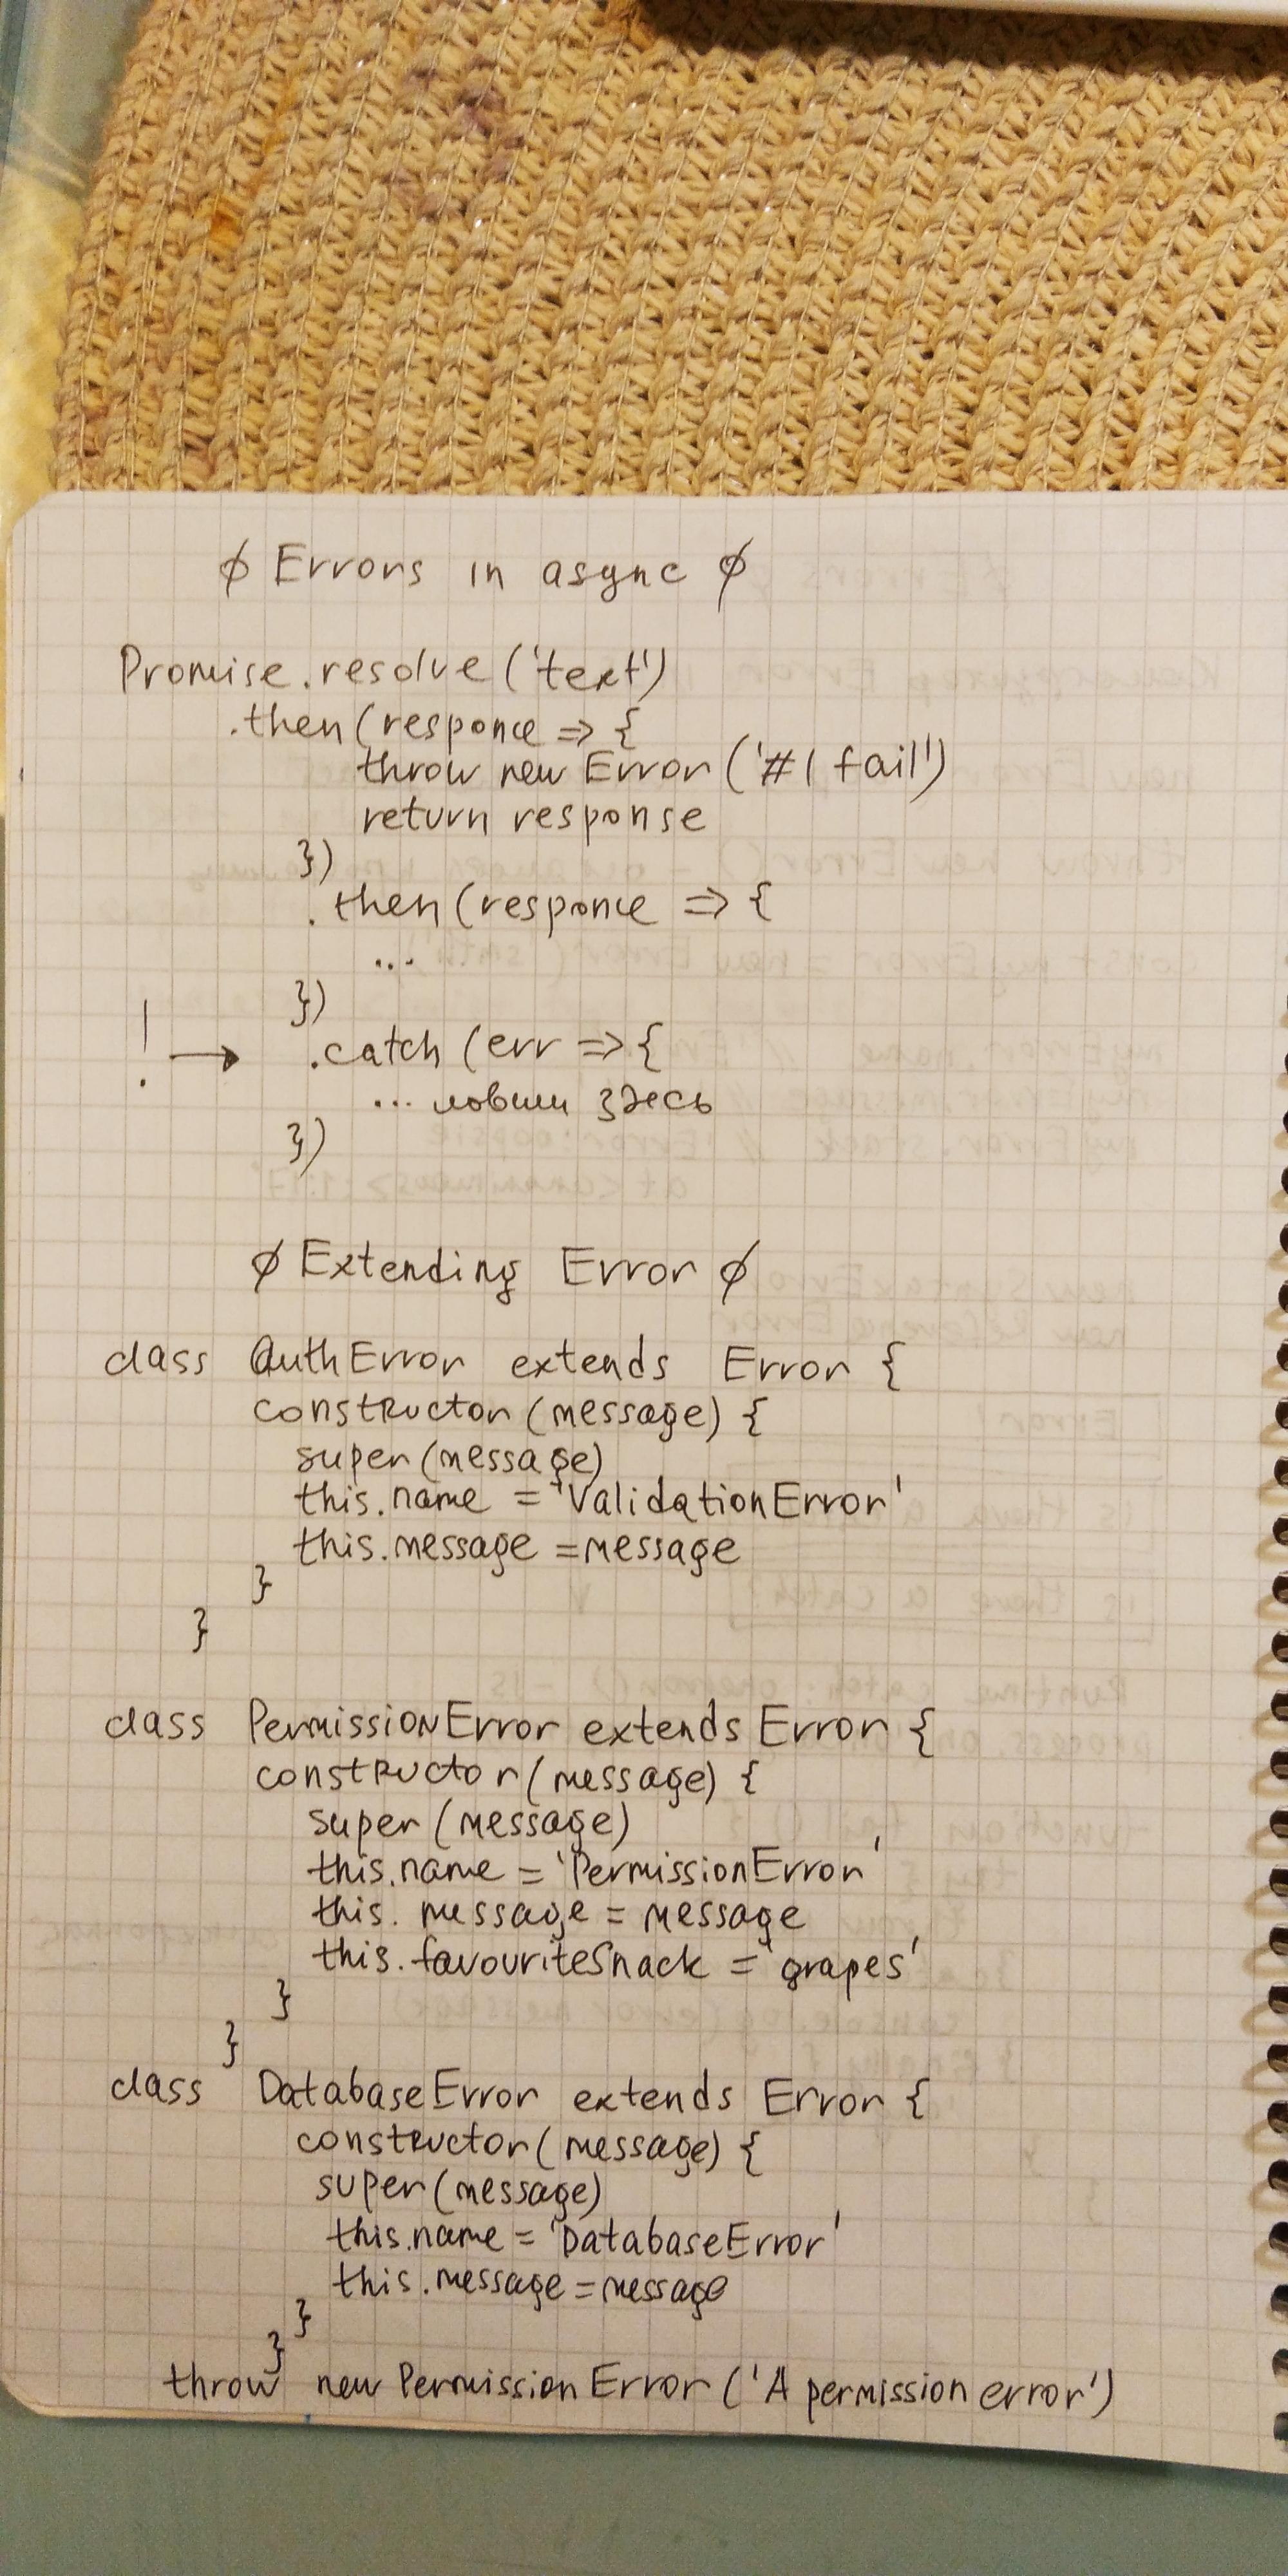 ϕ Errors in async ϕ
Promise.resolve('text')
.then(responce => {
throw new Error('#1 fail')
return response
})
.then(responce => {
...
})
! → .catch(err => {
... ловим здесь
})
ϕ Extending Error ϕ
class AuthError extends Error {
constructor(message) {
super(message)
this.name = 'ValidationError'
this.message = message
}
}
class PermissionError extends Error {
constructor(message) {
super(message)
this.name = 'PermissionError'
this.message = message
this.favouriteSnack = 'grapes'
}
}
class DatabaseError extends Error {
constructor(message) {
super(message)
this.name = 'DatabaseError'
this.message = message
}
}
throw new PermissionError('A permission error')